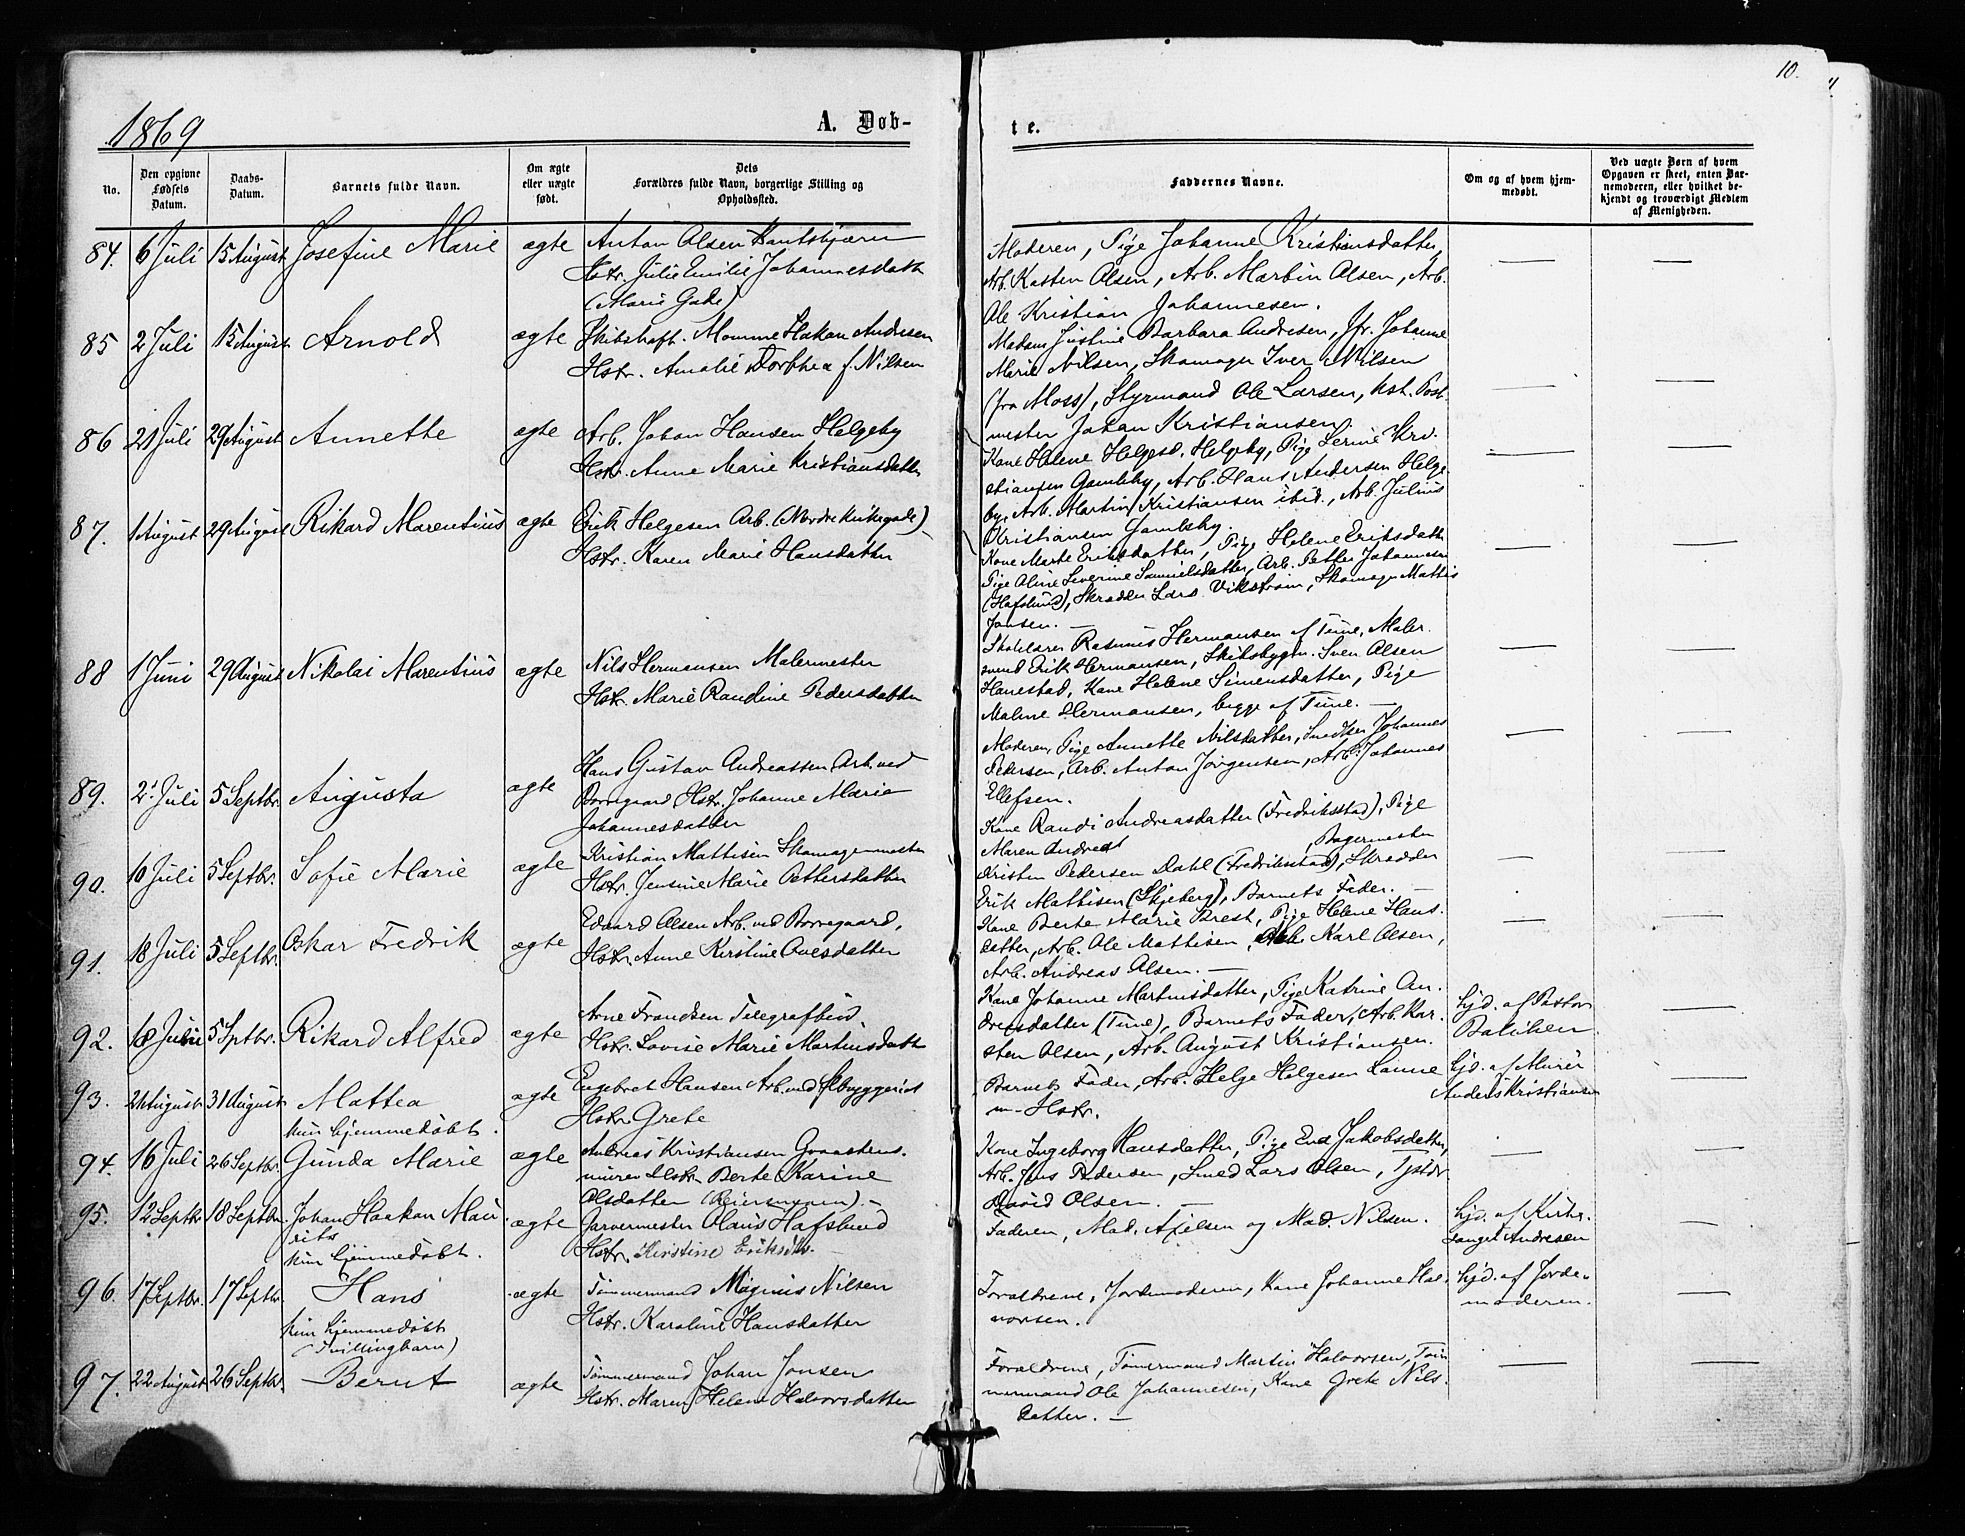 10.
11.
1869
A. Døb-
te.
No.
Den opgivne Fødsels Datum.
Daabs-Datum.
Barnets fulde Navn.
Om ægte eller uægte født.
Dets Forældres fulde Navn, borgerlige Stilling og Opholdssted.
Faddernes Navne.
Om og af hvem hjemmedøbt.
Ved uægte Børn af hvem Opgaven er skeet, enten Barnemoderen, eller hvilket bekjendt og troværdigt Medlem af Menigheden.
84. 6 Juli 15 August Josefine Marie ægte Anton Olsen
Hstr. Julie Emilie Johannesdatt
(Marie Gade)
Moderen, Pige Johanne Kristiansdatter,
Arb. Karsten Olsen, Arb. Martin Olsen, Arb.
Ole Kristian Johannesen.
85 2 Juli 15 August Arnold ægte Skibskaft. Momme Hakon Andresen
Hstr. Amalie Dorthea f. Nilsen
Madam Justine Barbara Andresen, Jfr. Johanne
Marie Nilsen, Skomager Iver Nilsen
(fra Moss), Styrmand Ole Larsen, kst. Post-
mester Johan Kristiansen.
86 21 Juli 29 August Annette ægte Arb. Johan Hansen Helgeby
Hstr. Anne Marie Kristiansdatter
Kone Helene Helgesd. Helgeby, Pige Kri-
stiansen Gamleby, Arb. Hans Andersen Helge-
by, Arb. Martin Kristiansen ibid., Arb. Julius
Kristiansen Gamleby.
87. 1 August 29 August Rikard Marentius ægte Erik Helgesen Arb. (Nordre Kirkegade)
Hstr. Karen Marie Hansdatter
Kone Marte Eriksdatter, Pige Helene Eriksdatter
Pige Oline Severine Samuelsdatter, Arb. Petter Johannesen
(Hafslund), Skrædder Lars Vikstrøm, Skomager Mattis
Jonsen. —
88 1 Juni 29 August Nikolai Marentius ægte Nils Hermansen Malermester
Hstr. Marie Randine Pedersdatter
Skolelærer Rasmus Hermansen af Tune, Maler-
svend Erik Hermansen, Skibsbygm. Sven Olsen
Hanestad, Kone Helene Simensdatter, Pige
Malene Hermansen, begge af Tune. —
89. 2' Juli 5 Septbr. Augusta ægte Hans Gustav Andreassen Arb. ved
Borregaard Hstr. Johanne Marie
Johannesdatter
Moderen, Pige Annette Nilsdatter, Johannes
Pedersen, Arb. Anton Jørgensen, Arb. Johannes
Ellefsen.
90. 10 Juli 5 Septbr. Sofie Marie ægte Kristian Mattisen Skomagermester
Hstr. Jensine Marie Pettersdatter
Kone Randi Andreasdatter (Fredriksstad), Pige
Maren Andreas , Bagermester
Kristen Pedersen Dahl (Fredriksstad), Skrædder
Erik Mattisen (Skjeberg), Barnets Fader. —
91. 18 Juli 5 Septbr. Oskar Fredrik ægte Edvard Olsen Arb. ved Borregaard,
Hstr. Anne Kirstine Ovesdatter
Kone Berte Marie Brest, Pige Helene Hans-
datter, Arb. Ole Mattisen, Arb. Karl Olsen,
Arb. Andreas Olsen. —
92. 18 Juli 5 Septbr. Rikard Alfred ægte Arne Frandsen Telegrafbud
Hstr. Lovise Marie Martinsdatt
Kone Johanne Martinsdatter, Pige Katrine An-
dreasdatter (Tune), Barnets Fader, Arb. Kar-
sten Olsen, Arb. August Kristiansen.
hjd. af Pastor
Balchen
93. 21 August 31 August Mattea ægte Engebret Hansen Arb. ved Ølbryggeriet
kun hjemmedøbt. Hstr. Grete
Barnets Fader, Arb. Helge Helgesen Lanne
m- Hstr.
hjd. af Murer
Anders Kristiansen
94. 16 Juli 26 Septbr. Gunda Marie ægte Andreas Kristiansen Graastens-
murer Hstr. Berte Karine
Olsdatter
Kone Ingeborg Hansdatter, Pige Eva Jakobsdatter,
Arb. Jens Pedersen, Smed Lars Olsen,
David Olsen. —
95. 12 Septbr 18 Septbr. Johan Haakon Mau- ægte Garvermester Olaus Hafslund
ritz
kun hjemmedøbt. Hstr. Kirstine Eriksdtr. —
Faderen, Mad. Axelsen og Mad. Nilsen.
hjd. af Kirke-
sanger Andresen
96. 17 Septbr. 17 Septbr Hans ægte Tømmermand Magnus Nilsen
kun hjemmedøbt Hstr. Karoline Hansdatter
(Tvillingbarn)
Forældrene, Jordemoderen, Kone Johanne Hal-
vorsen.
hjd. af Jorde-
moderen.
97. 22 August 26 Septbr. Bernt ægte Tømmermand Johan Jonsen
Hstr. Maren Helene Halvorsdatter
Forældrene, Tømmermand Martin Halvorsen, Tøm-
mermand Ole Johannesen, Kone Grete Nils-
datter. —